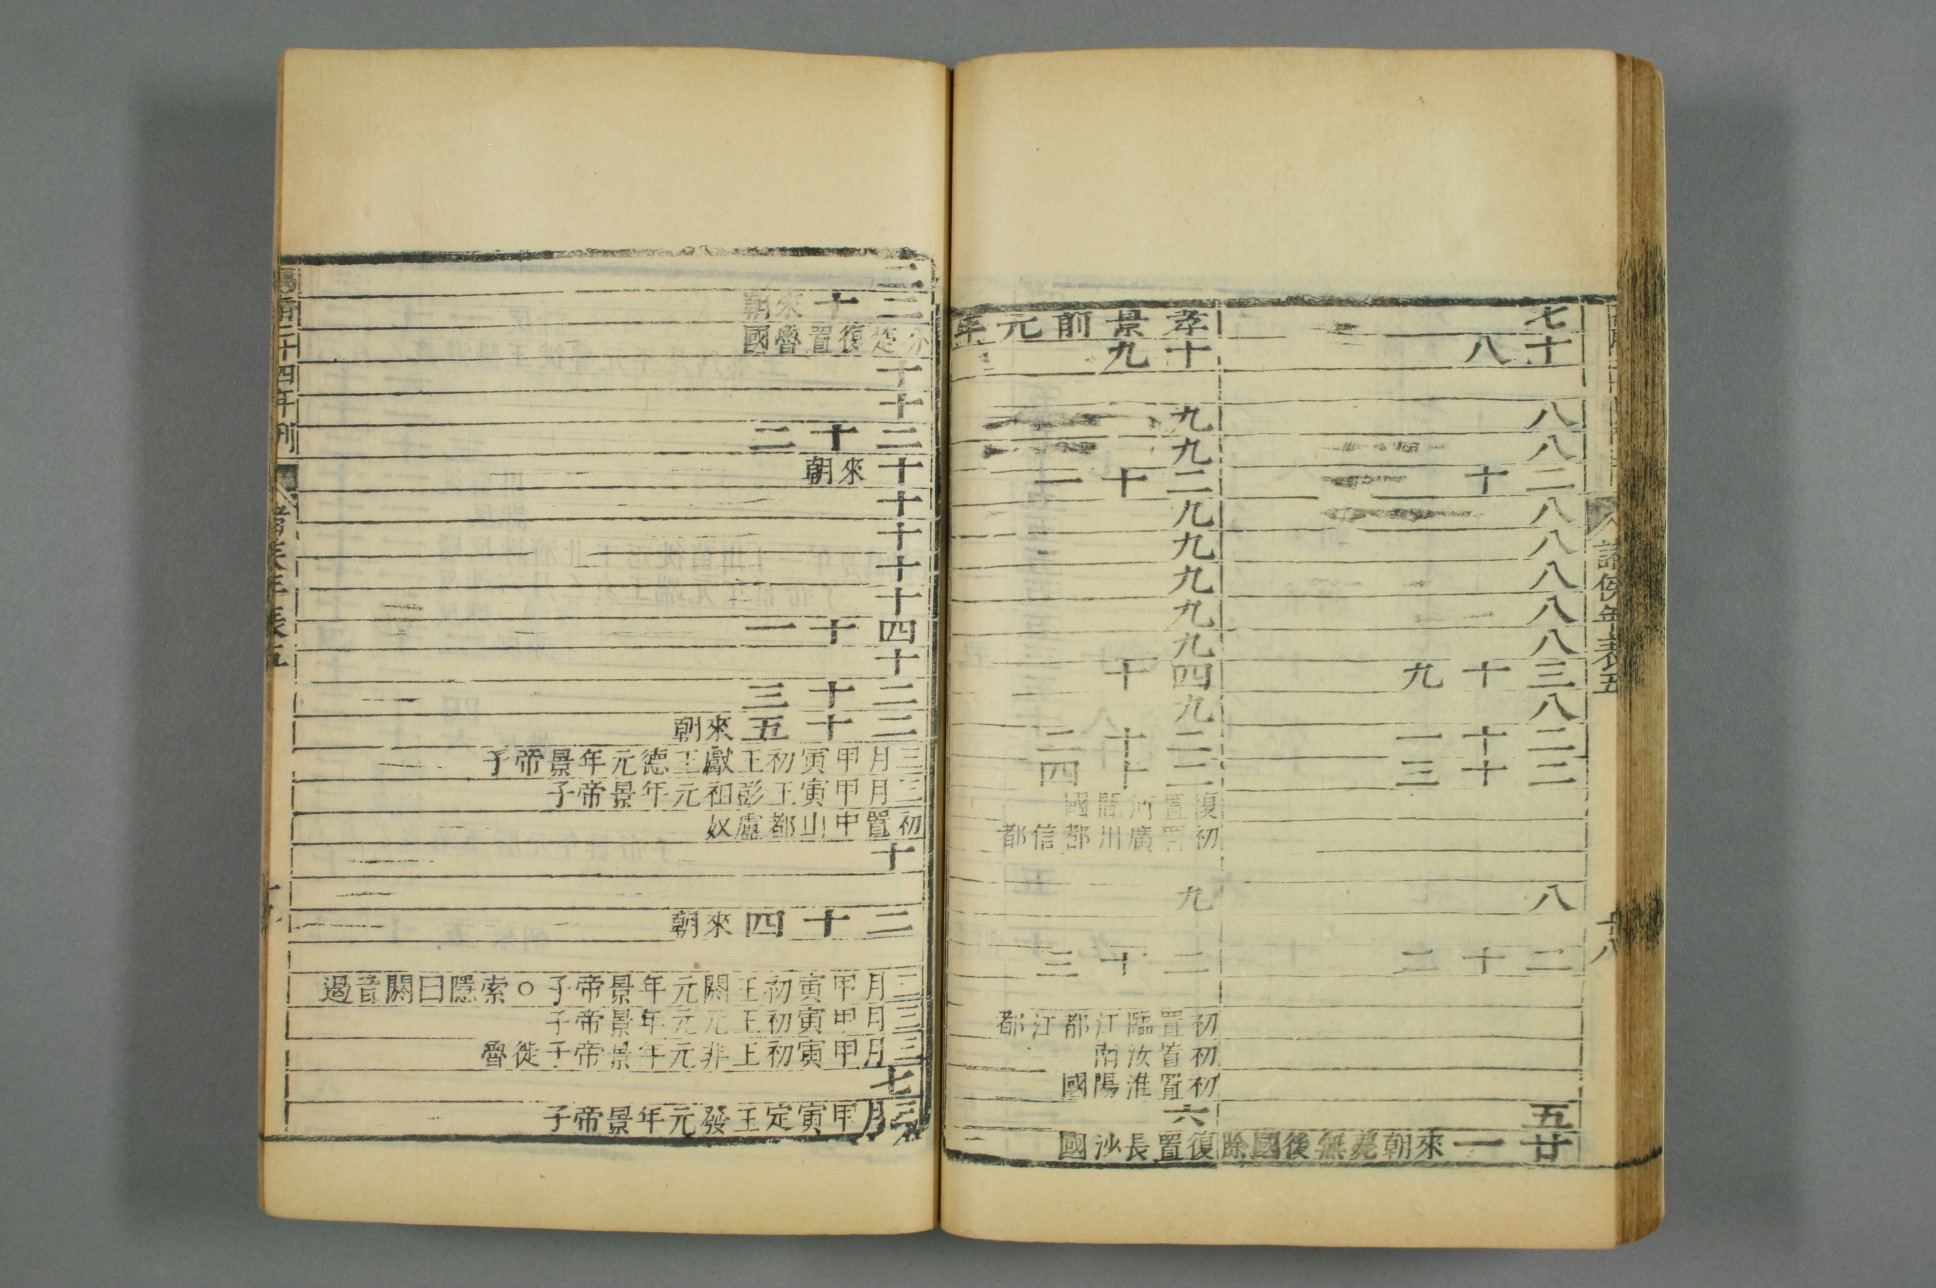 諸侯年表五
十八
七
十八
八
八
二十
八
八
八
八
八
三十九
八
二十一
二十三
八
二十二
五
廿一來朝薨無後國除
孝景前元年
十九
九
九
二十一
九
九
九
九
九
四十
九
二十二
二十四
復置河間國
初置廣川都信都
九
二十三
初置臨江都江都
初置汝南
初置淮陽國
六
復置長沙國
二
二十來朝
分楚復置魯國
十
十
二十二
十來朝
十
十
十
十
四十一
十
二十三
二十五來朝
三月甲寅初王獻王德元年景帝子
三月甲寅王彭祖元年景帝子
初置中山都盧奴
十
二十四來朝
三月甲寅初王閼元年景帝子○索隱曰閼音遏
三月甲寅初王元元年景帝子
三月甲寅初王非元年景帝子徙魯
七
三月甲寅定王發元年景帝子
二十四年刊
年表五